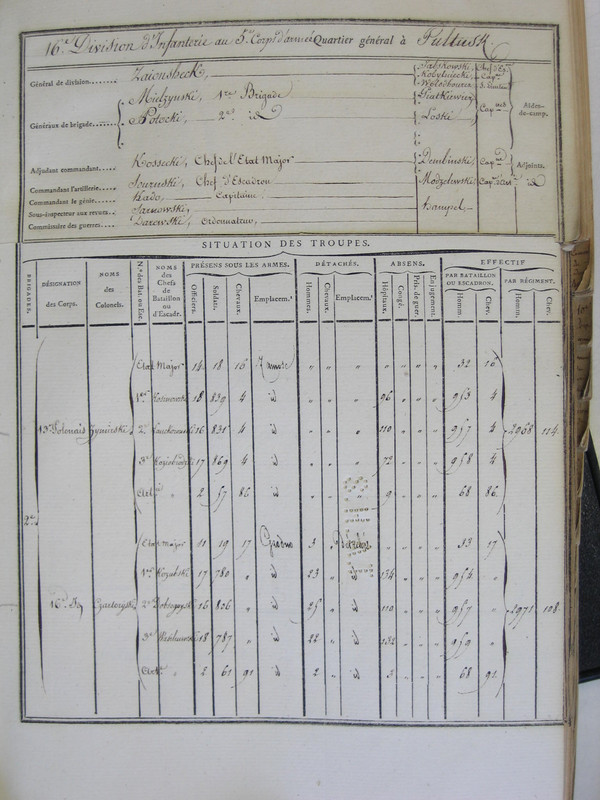 16.e Division d'Infanterie au 5.e Corps d'armée Quartier général à Pultusk
Général de division....... Zaionsheck, Chef d'Esc.
Kobylniecki, Cap.ne
Généraux de brigade....... 1re Brigade Piatkiewicz Cap.nes Aides-de-camp.
Potocki, 2.e id Loski
Adjudant commandant. Kossecki, Chef de l'Etat Major Dembinski, Cap.ne Adjoints.
Commandant l'artillerie. Chef d'Escadron Modzelewski Cap. id
Commandant le génie. Capitaine
Sous-inspecteur aux revues. Hampel
Commissaire des guerres. Ordonnateur,
SITUATION DES TROUPES.
BRIGADES. DÉSIGNATION des Corps. NOMS des Colonels. N.os des Bat. ou Esc. NOMS des Chefs de Bataillon ou d'Escadr. PRÉSENS SOUS LES ARMES. DÉTACHÉS. ABSENS. EFFECTIF
Officiers. Soldats. Chevaux. Emplacem.t Hommes. Chevaux. Emplacem.t Hôpitaux. Congé. Pris. de guer. En jugement. PAR BATAILLON OU ESCADRON. PAR RÉGIMENT.
Homm. Chev. Homm. Chev.
Etat Major 14 18 16 Zamosc " " " " " " " 32 16
1.er 18 839 4 id " " " 96 " " " 953 4
13.e Polonais 2.e 16 831 4 id " " " 110 " " " 957 4 2968 114
3.e 17 869 4 id " " " 72 " " " 958 4
Art.ie " 2 57 86 id " " " 9 " " " 68 86
2.e
Etat major 11 19 17 3 " " " " " 33 17
1.er Kozubski 17 780 " id 23 " id 134 " " " 954 "
16.e Czartoryski 2.e 16 806 " id 25 " id 110 " " " 957 " 2971 108
3.e 18 787 " id 22 " id 132 " " " 959 "
2 61 91 id 2 " id 3 " " " 68 91